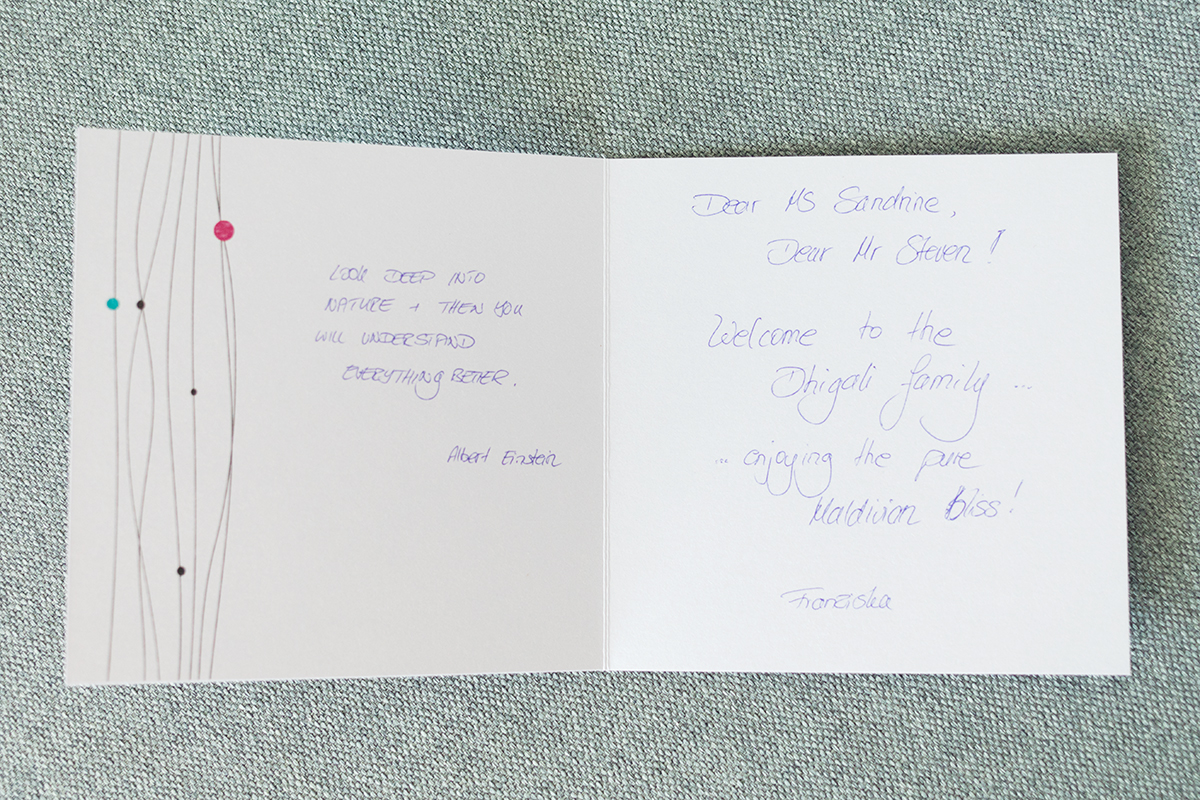 LOOK DEEP INTO
NATURE + THEN YOU
WILL UNDERSTAND
EVERYTHING BETTER.
Albert Einstein
Dear MS Sandrine,
Dear Mr Steven!
Welcome to the
Dhigali family ...
... enjoying the pure
Maldivian Bliss!
Franziska